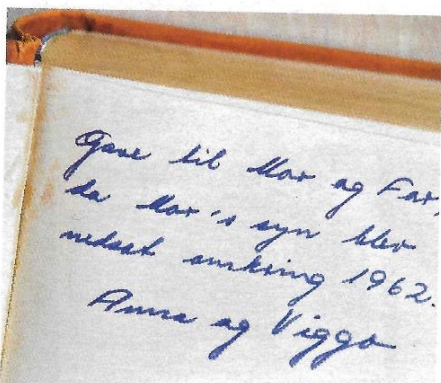 Gave til Mor og Far,
da Mor's syn blev
nedsat omkring 1962.
Anna og Viggo